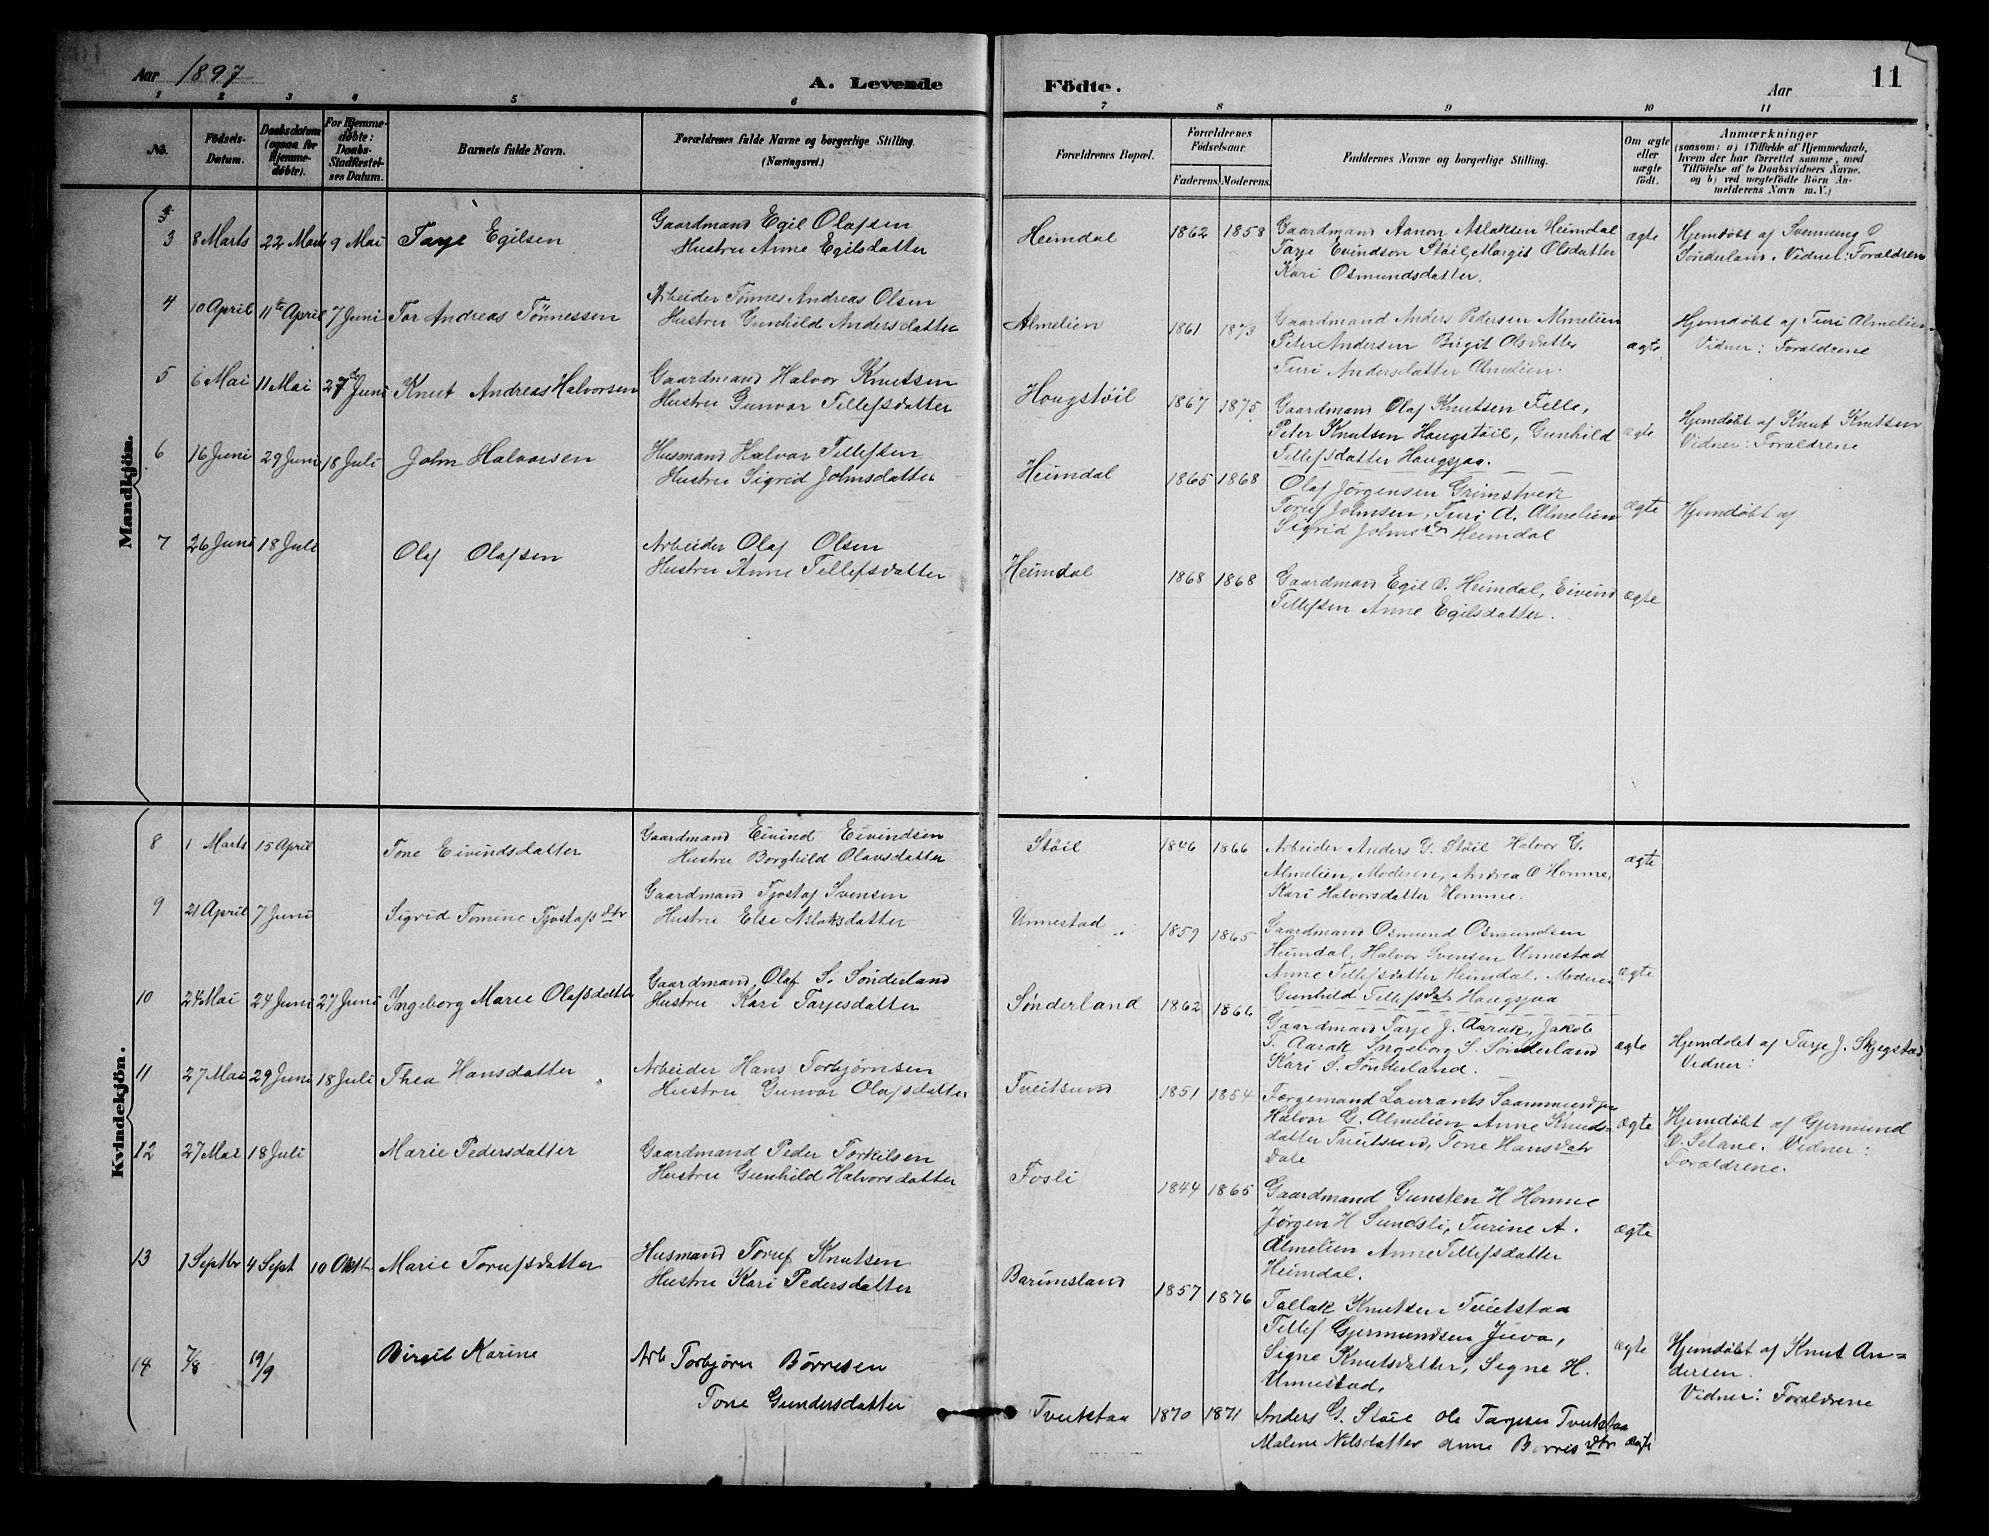 Aar 1897
A. Levende
Födte.
Aar
11
1 2 3 4 5 6
7 8 9 10 11
No.
Födsels-
Datum.
Daabsdatum
(ogsaa for
Hjemme-
døbte).
For Hjemme-
døbte:
Daabs-
Stadfæstel-
ses Datum.
Barnets fulde Navn.
Forældrenes fulde Navne og borgerlige Stilling.
(Næringsvei.)
Forældrenes Bopæl.
Forældrenes
Fødselsaar.
Faderens. Moderens.
Faddernes Navne og borgerlige Stilling.
Om ægte
eller
uægte
født.
Anmærkninger
(saasom: a) i Tilfælde af Hjemmedaab,
hvem der har forrettet samme, med
Tilføielse af to Daabsvidners Navne.
og b) ved uægtefødte Børn An-
melderens Navn m.V.)
Mandkjön.
3 8 Marts 22 Marts 9 Mai Tarje Egilsen
Gaardmand Egil Olafsen
Hustru Anne Egilsdatter
Heimdal 1862 1858
Gaardmand Aanon Aslaksen Heimdal
Tarje Evindson Støil, Margit Olsdatter
Kari Osmundsdatter.
ægte
Hjemdøbt af Svennung O
Sønderland. Vidner: Forældren
4 10 April 11te April 7 Juni Tor Andreas Tønnessen
Arbeider Tønnes Andreas Olsen
Hustru Gunhild Andersdatter
Almelien 1861 1873
Gaardmand Anders Pedersen Almelien
Peter Andersen Birgit Olsdatter
Turi Andersdatter Almelien.
ægte
Hjemdøbt af Turi Almelien
Vidner: Forældrene
5 6 Mai 11 Mai 27de Juni Knut Andreas Halvorsen
Gaardmand Halvor Knutsen
Hustru Gunvor Tellefsdatter
Hougstøil 1867 1875
Gaardmand Olaf Knutsen Felle,
Peter Knutsen Haugstøil, Gunhild
Tellefsdatter Haugsjaa.
ægte
Hjemdøbt af Knut Knutsen
Vidner: Forældrene
6 16 Juni 29 Juni 18 Juli John Halvorsen
Husmand Halvor Tellefsen
Hustru Sigrid Johnsdatter
Heimdal 1865 1868
Olaf Jørgensen Grimstvedt
Toruf Johnsen, Turi A. Almelien
Sigrid Johnsdtr Heimdal
ægte
Hjemdøbt af
7 26 Juni 18 Juli Olaf Olafsen
Arbeider Olaf Olsen
Hustru Anne Tellefsdatter
Heimdal 1868 1868
Gaardmand Egil O. Heimdal, Eivind
Tellefsen Anne Egilsdatter.
ægte
Kvindekjön.
8 1 Marts 15 April Tone Eivindsdatter
Gaardmand Eivind Eivindsen
Hustru Borghild Olavsdatter
Støil 1846 1866
Arbeider Anders G. Støil Halvor G.
Almelien, Moderen, Andrea O Homme,
Kari Halvorsdatter Homme.
ægte
9 21 April 7 Juni Sigrid Tomine Tjostafsdtr
Gaardmand Tjostaf Svensen
Hustru Else Aslaksdatter
Unnestad 1859 1865
Gaardmand Osmund Osmundsen
Heimdal, Halvor Svensen Unnestad
Anne Tellefsdatter Heimdal, Moderen
Gunhild Tellefsdatr Haugsjaa
ægte
10 24 Mai 24 Juni 27 Juni Ingeborg Marie Olafsdatter
Gaardmand, Olaf S. Sønderland
Hustru Kari Tarjesdatter
Sønderland 1862 1866
Gaardmand Tarje J. Aarak, Jakob
T. Aarak Ingeborg S. Sønderland
Kari S. Sønderland.
ægte
Hjemdøbt af Tarje J. Skjegstad
Vidner:
11 27 Mai 29 Juni 18 Juli Thea Hansdatter
Arbeider Hans Torbjørnsen
Hustru Gunvor Olafsdatter
Tveitsund 1851 1854
Forgemand Laurants
Halvor G. Almelien Anne Knuds-
datter Tveitsund, Tone Hansdatr
Dale
ægte
Hjemdøbt af Gjermund
O. Setane. Vidner:
Forældrene.
12 27 Mai 18 Juli Marie Pedersdatter
Gaardmand Peder Torkilsen
Hustru Gunhild Halvorsdatter
Fosli 1844 1865
Gaardmand Gunsten H Homme
Jørgen H Sundsli, Turine A.
Almelien Anne Tellefsdatter
Heimdal.
ægte
13 1 Septbr 4 Sept 10 Oktbr Marie Torufsdatter
Husmand Toruf Knutsen
Hustru Kari Pedersdatter
Barunsland 1857 1876
Tallak Knutsen Tveitstaa
Tellef Gjermundsen Juva,
Signe Knutsdatter, Signe H.
Unnestad,
ægte
Hjemdøbt af Knut An=
dersen.
Vidner: Forældrene
14 7/8 19/9 Birgit Karine
Arb Torbjørn Börresen
Tone Gundersdatter
Tveitstaa 1870 1871
Anders G. Støil Ole Tarjesen Tveitstaa
Malene Nilsdatter Anne Borresdtr
ægte